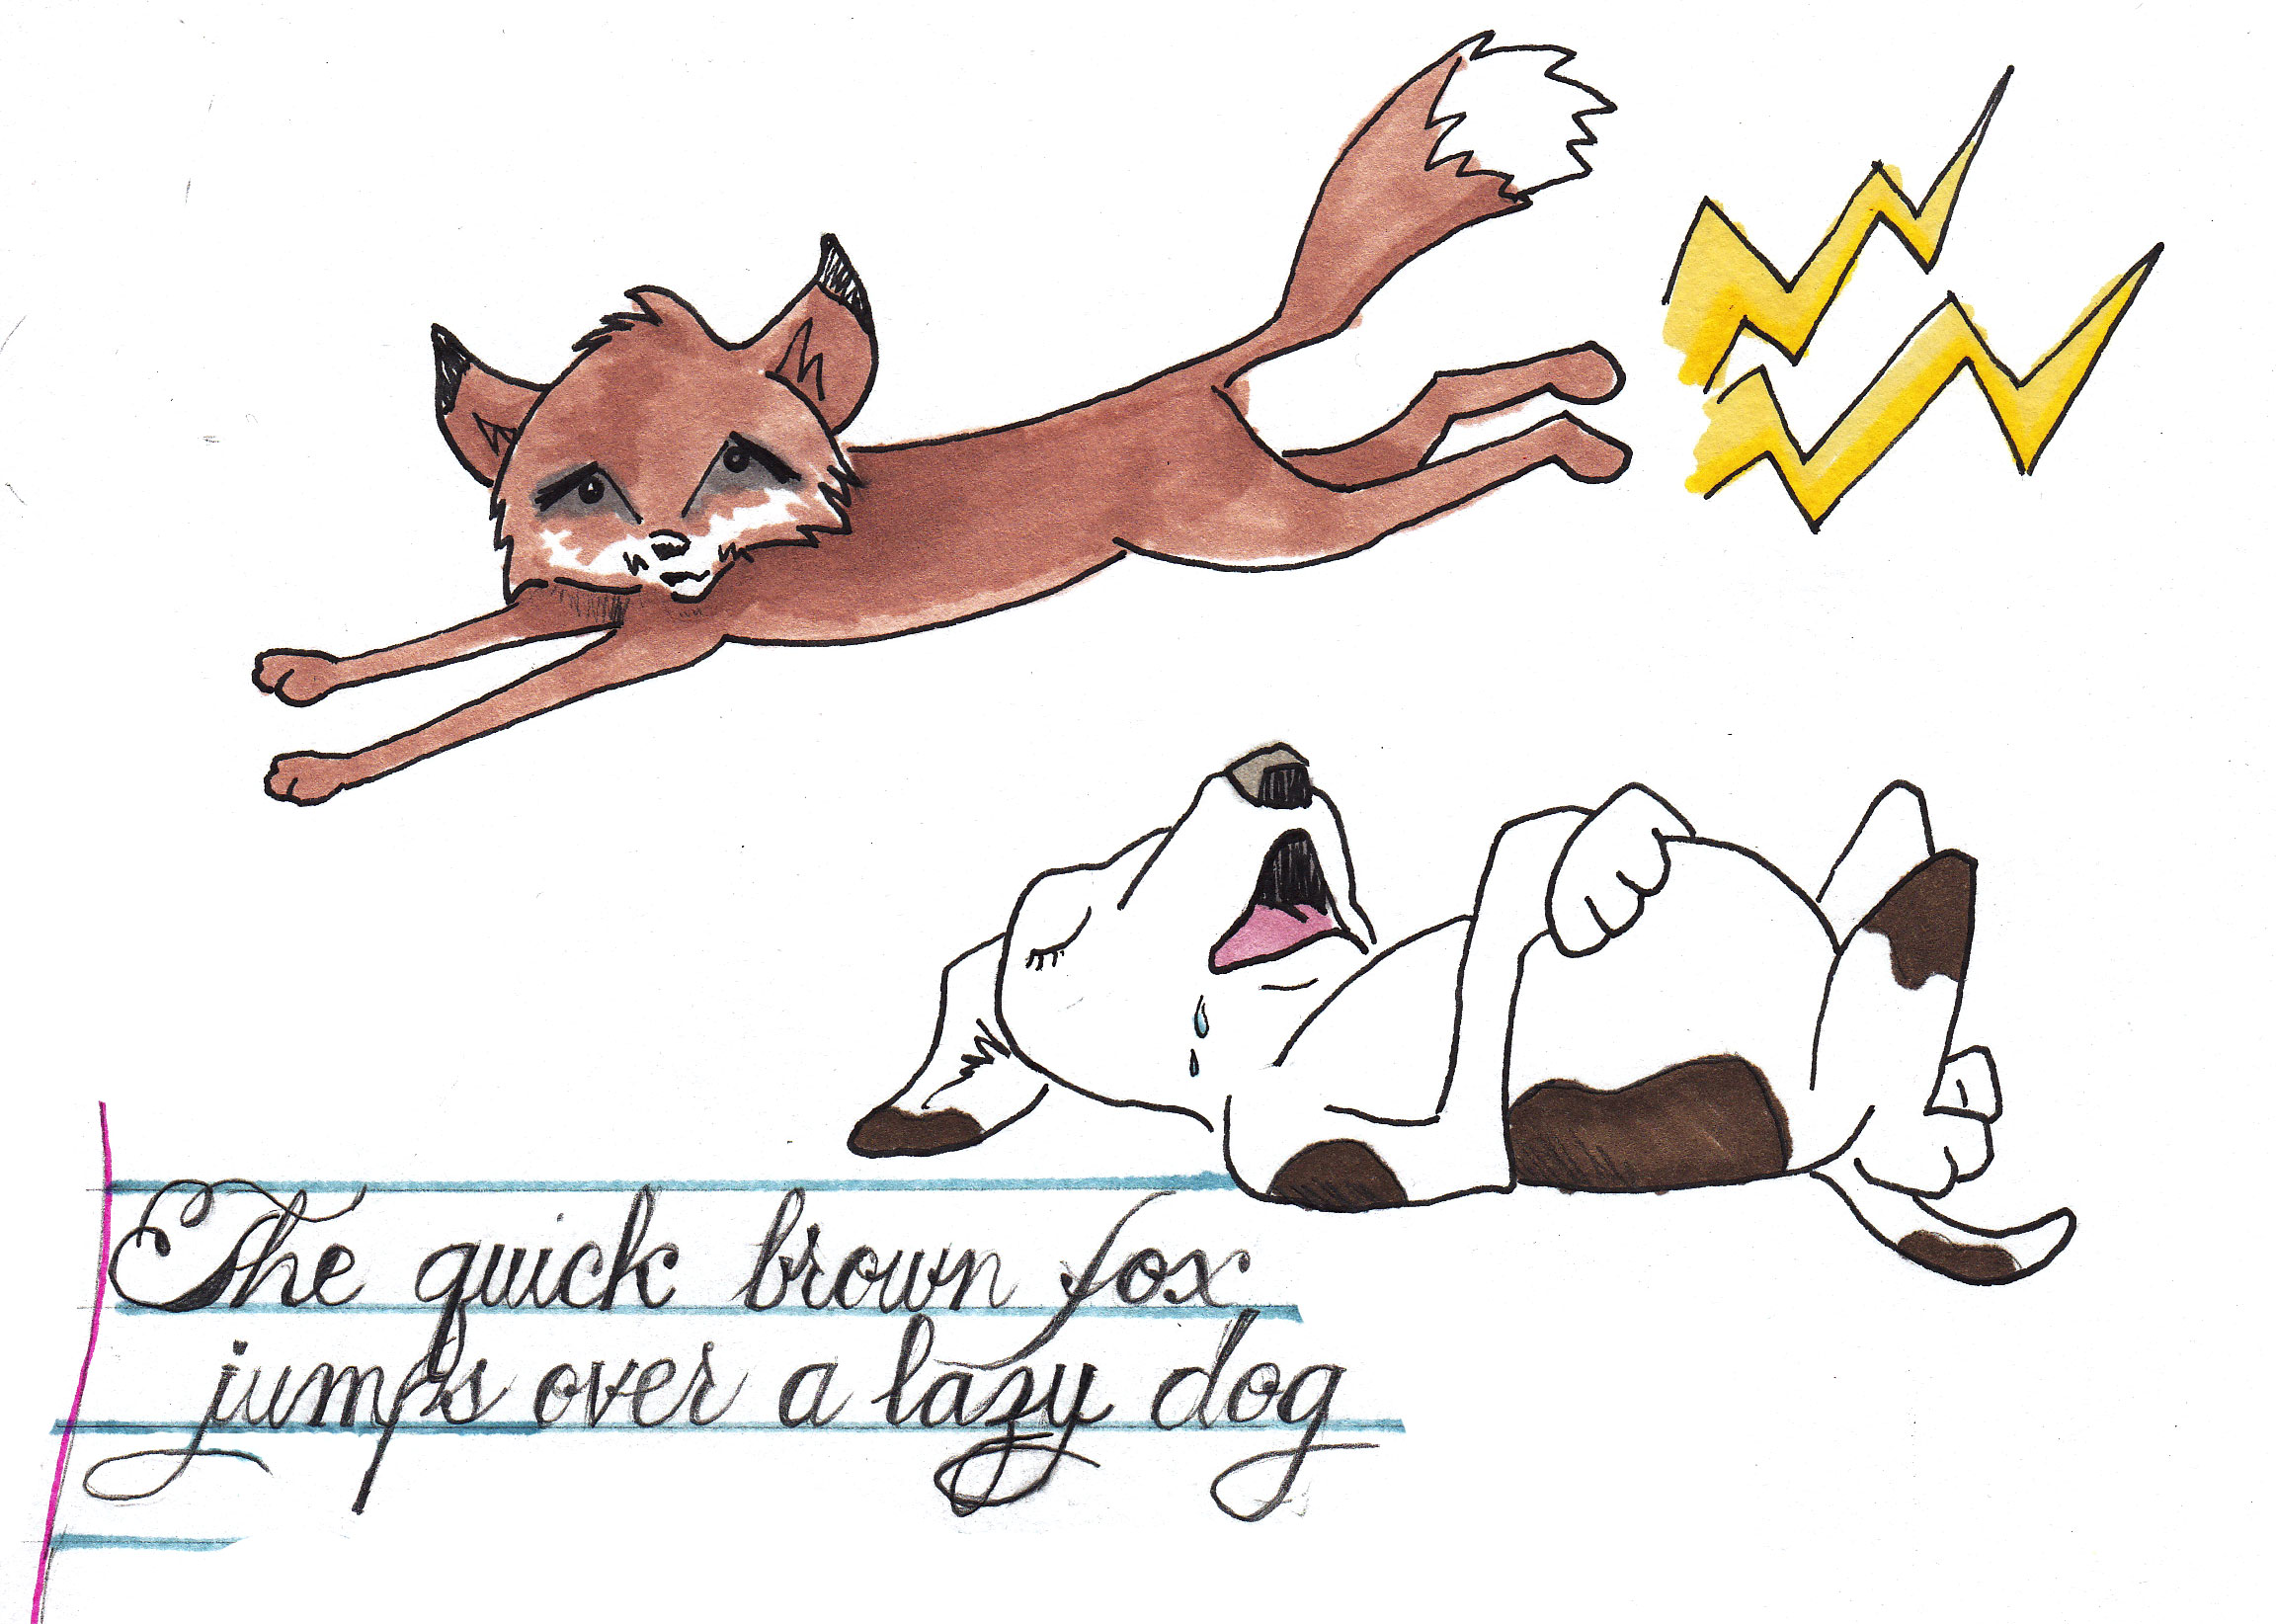 The quick brown fox
jumps over a lazy dog